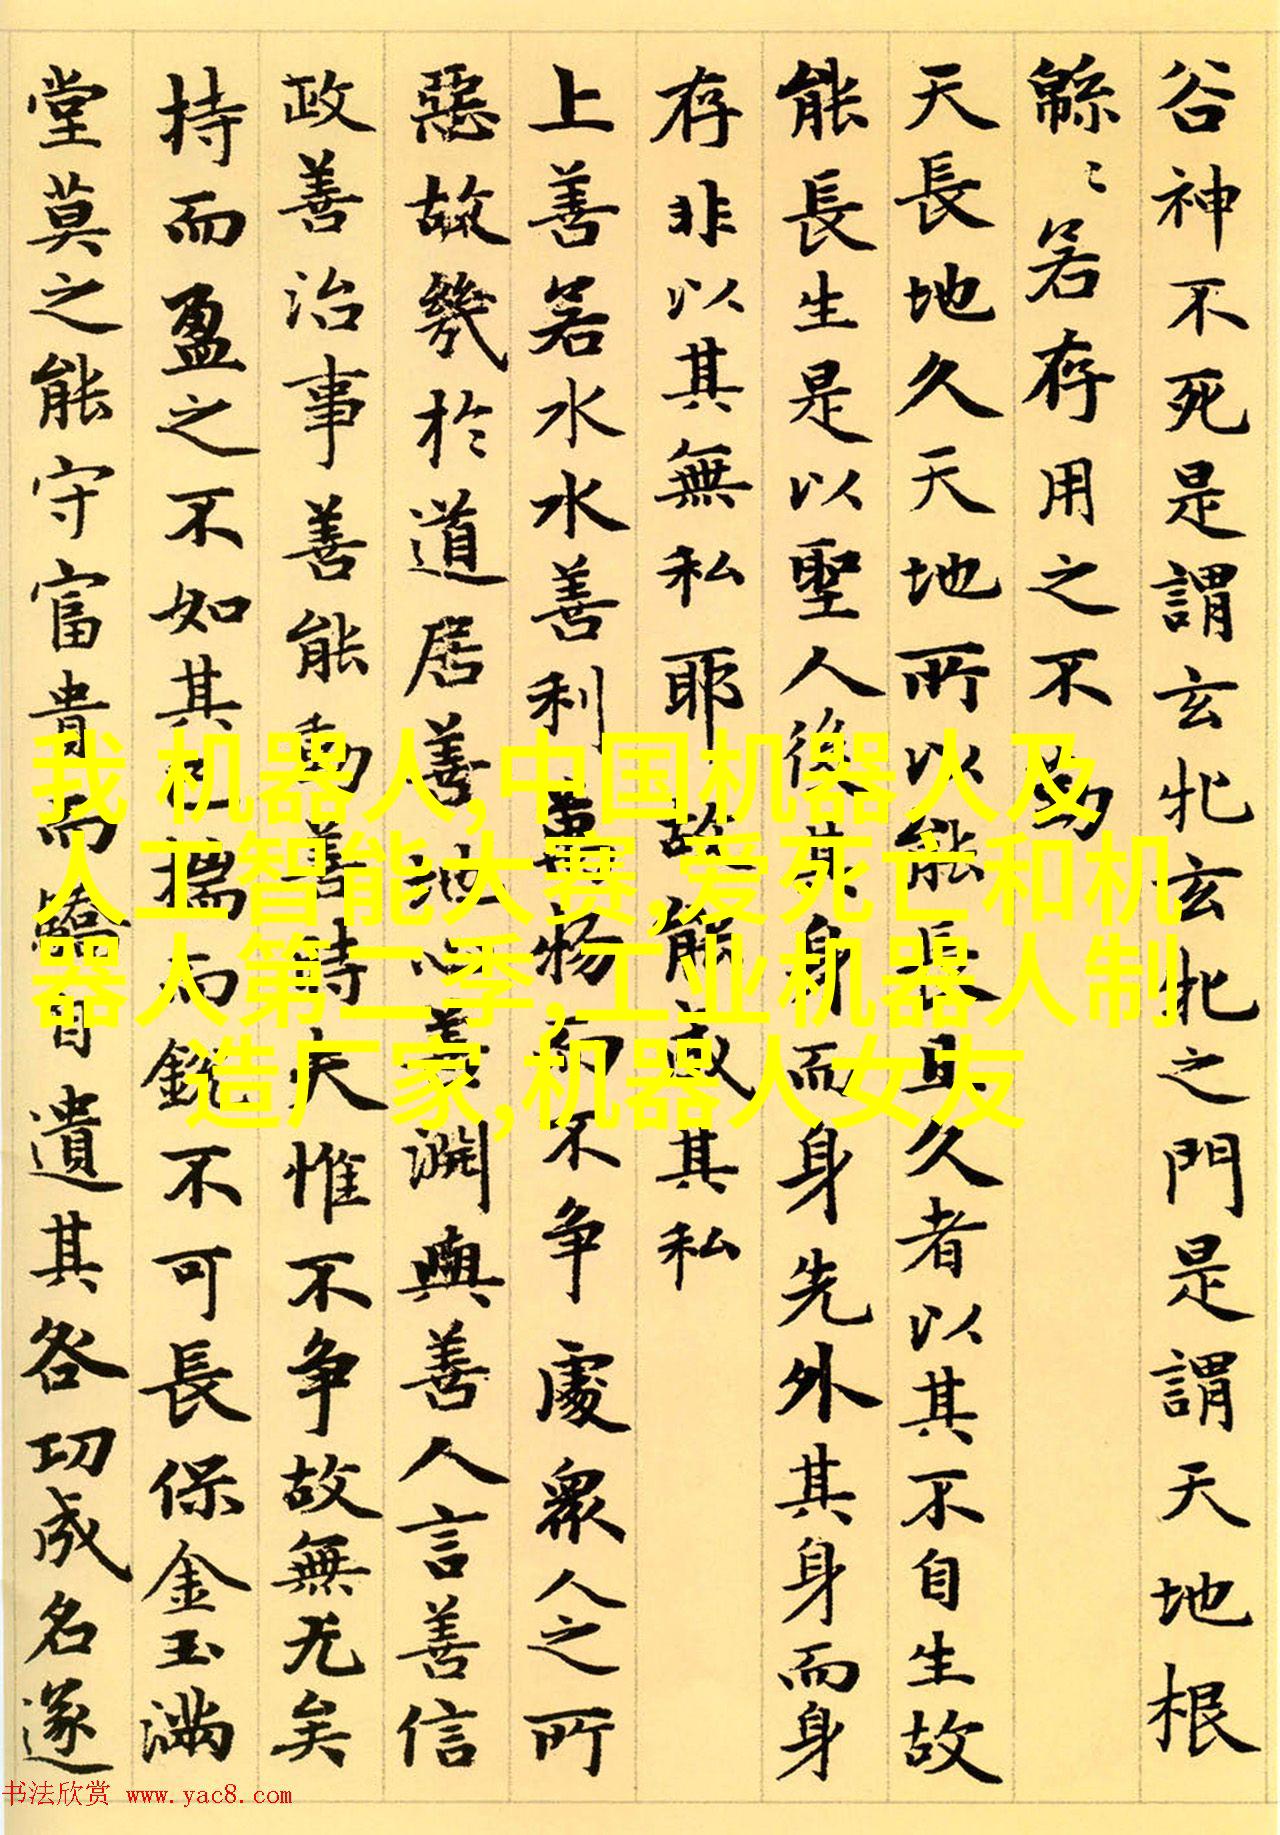 谷神不死是謂玄牝玄牝之門是謂天地根
緜〻若存用之不勤
天長地久天地所以能長且久者以其不自生故
能長生是以聖人後其身而身先外其身而身
存非以其無私耶故能成其私
上善若水水善利萬物而不争處衆人之所
惡故幾於道居善地心善淵與善人言善信
政善治事善能動善時夫惟不争故無尤矣
持而盈之不如其已揣而鋭不可長保金玉滿
堂莫之能守富貴而驕自遺其咎功成名遂
我 机器人,中国机器人及
人工智能大赛,爱死亡和机
器人第二季,工业机器人制
造厂家,机器人女友
书法欣赏 www.yac8.com